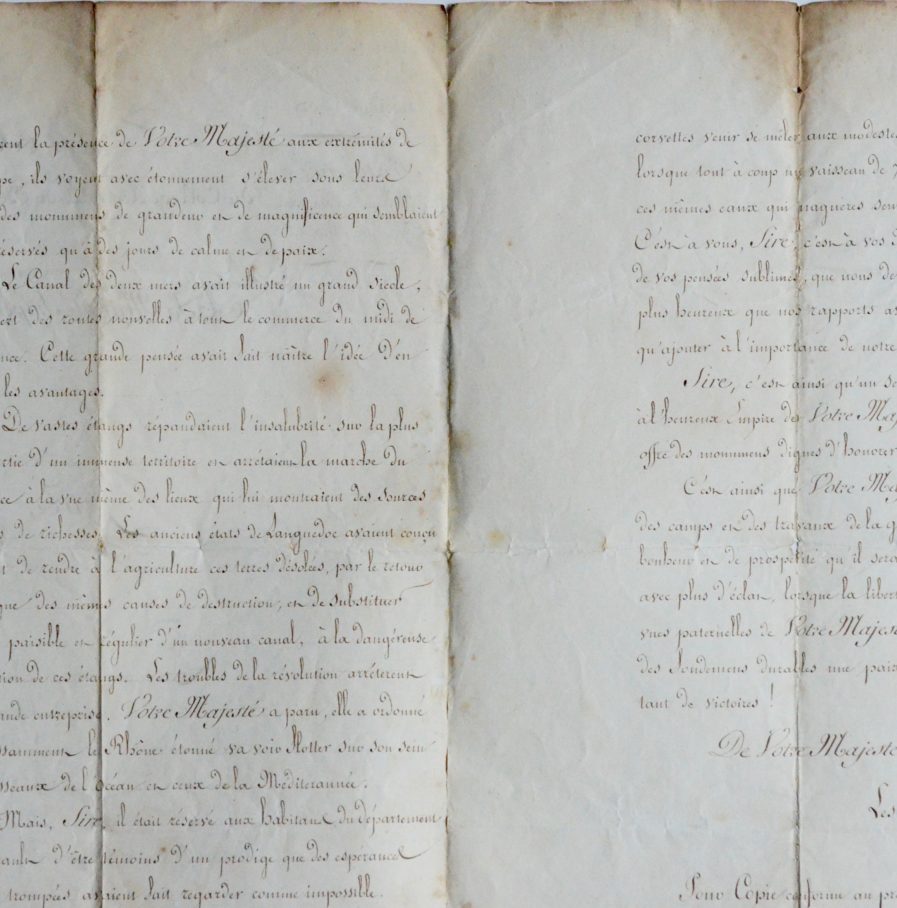 la présence de Votre Majesté aux extrémités de
, ils voyent avec étonnement s'élever sous leurs
des monumens de grandeur et de magnificence qui semblaient
réservés qu'à des jours de calme et de paix.
Le Canal des deux mers avait illustré un grand siecle,
des routes nouvelles à tout le commerce du midi de
nce. Cette grande pensée avait fait naître l'idée d'en
les avantages.
De vastes étangs répandaient l'insalubrité sur la plus
rtie d'un immense territoire et arrêtaient la marche du
ce à la vue même des lieux qui lui montraient des sources
de richesses. Les anciens états de Languedoc avaient conçu
de rendre à l'agriculture ces terres désolées, par le retour
que des mêmes causes de destruction, et de substituer
paisible et régulier d'un nouveau canal, à la dangereuse
tion de ces étangs. Les troubles de la révolution arrêterent
ande entreprise. Votre Majesté a paru, elle a ordonné
ssamment le Rhône étonné va voir flotter sur son sein
sseaux de l'Océan et ceux de la Méditerannée.
Mais, Sire, il était réservé aux habitans du département
ault d'être témoins d'un prodige que des espérances
trompées avaient fait regarder comme impossible.
corvettes venir se mêler aux modestes
lorsque tout à coup un vaisseau de 7
ces mêmes eaux qui naguères sem
C'est à vous, Sire, c'est à vos
de vos pensées sublimes, que nous de
plus heureux que nos rapports av
qu'ajouter à l'importance de notre
Sire, c'est ainsi qu'un se
à l'heureux Empire de Votre Maj
offre des monumens dignes d'honorer
C'est ainsi que Votre Maj
des camps et des travaux de la g
bonheur et de prospérité qu'il sera
avec plus d'éclat, lorsque la liber
vues paternelles de Votre Majes
des fondemens durables une paix
tant de victoires !
De Votre Majesté
Les
Pour Copie conforme au pr